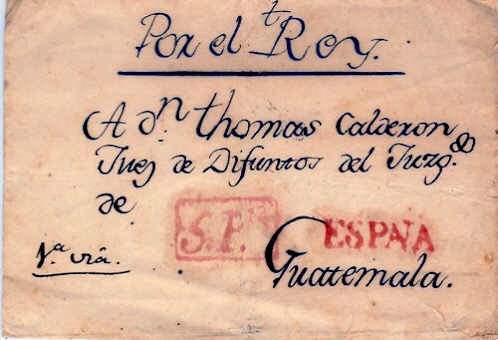 Por el Rey.
A dn. thomas Calderon
Juez de Difuntos del Juzgdo.
de
S.P.
ESPAÑA
1ª viã.
Guatemala.